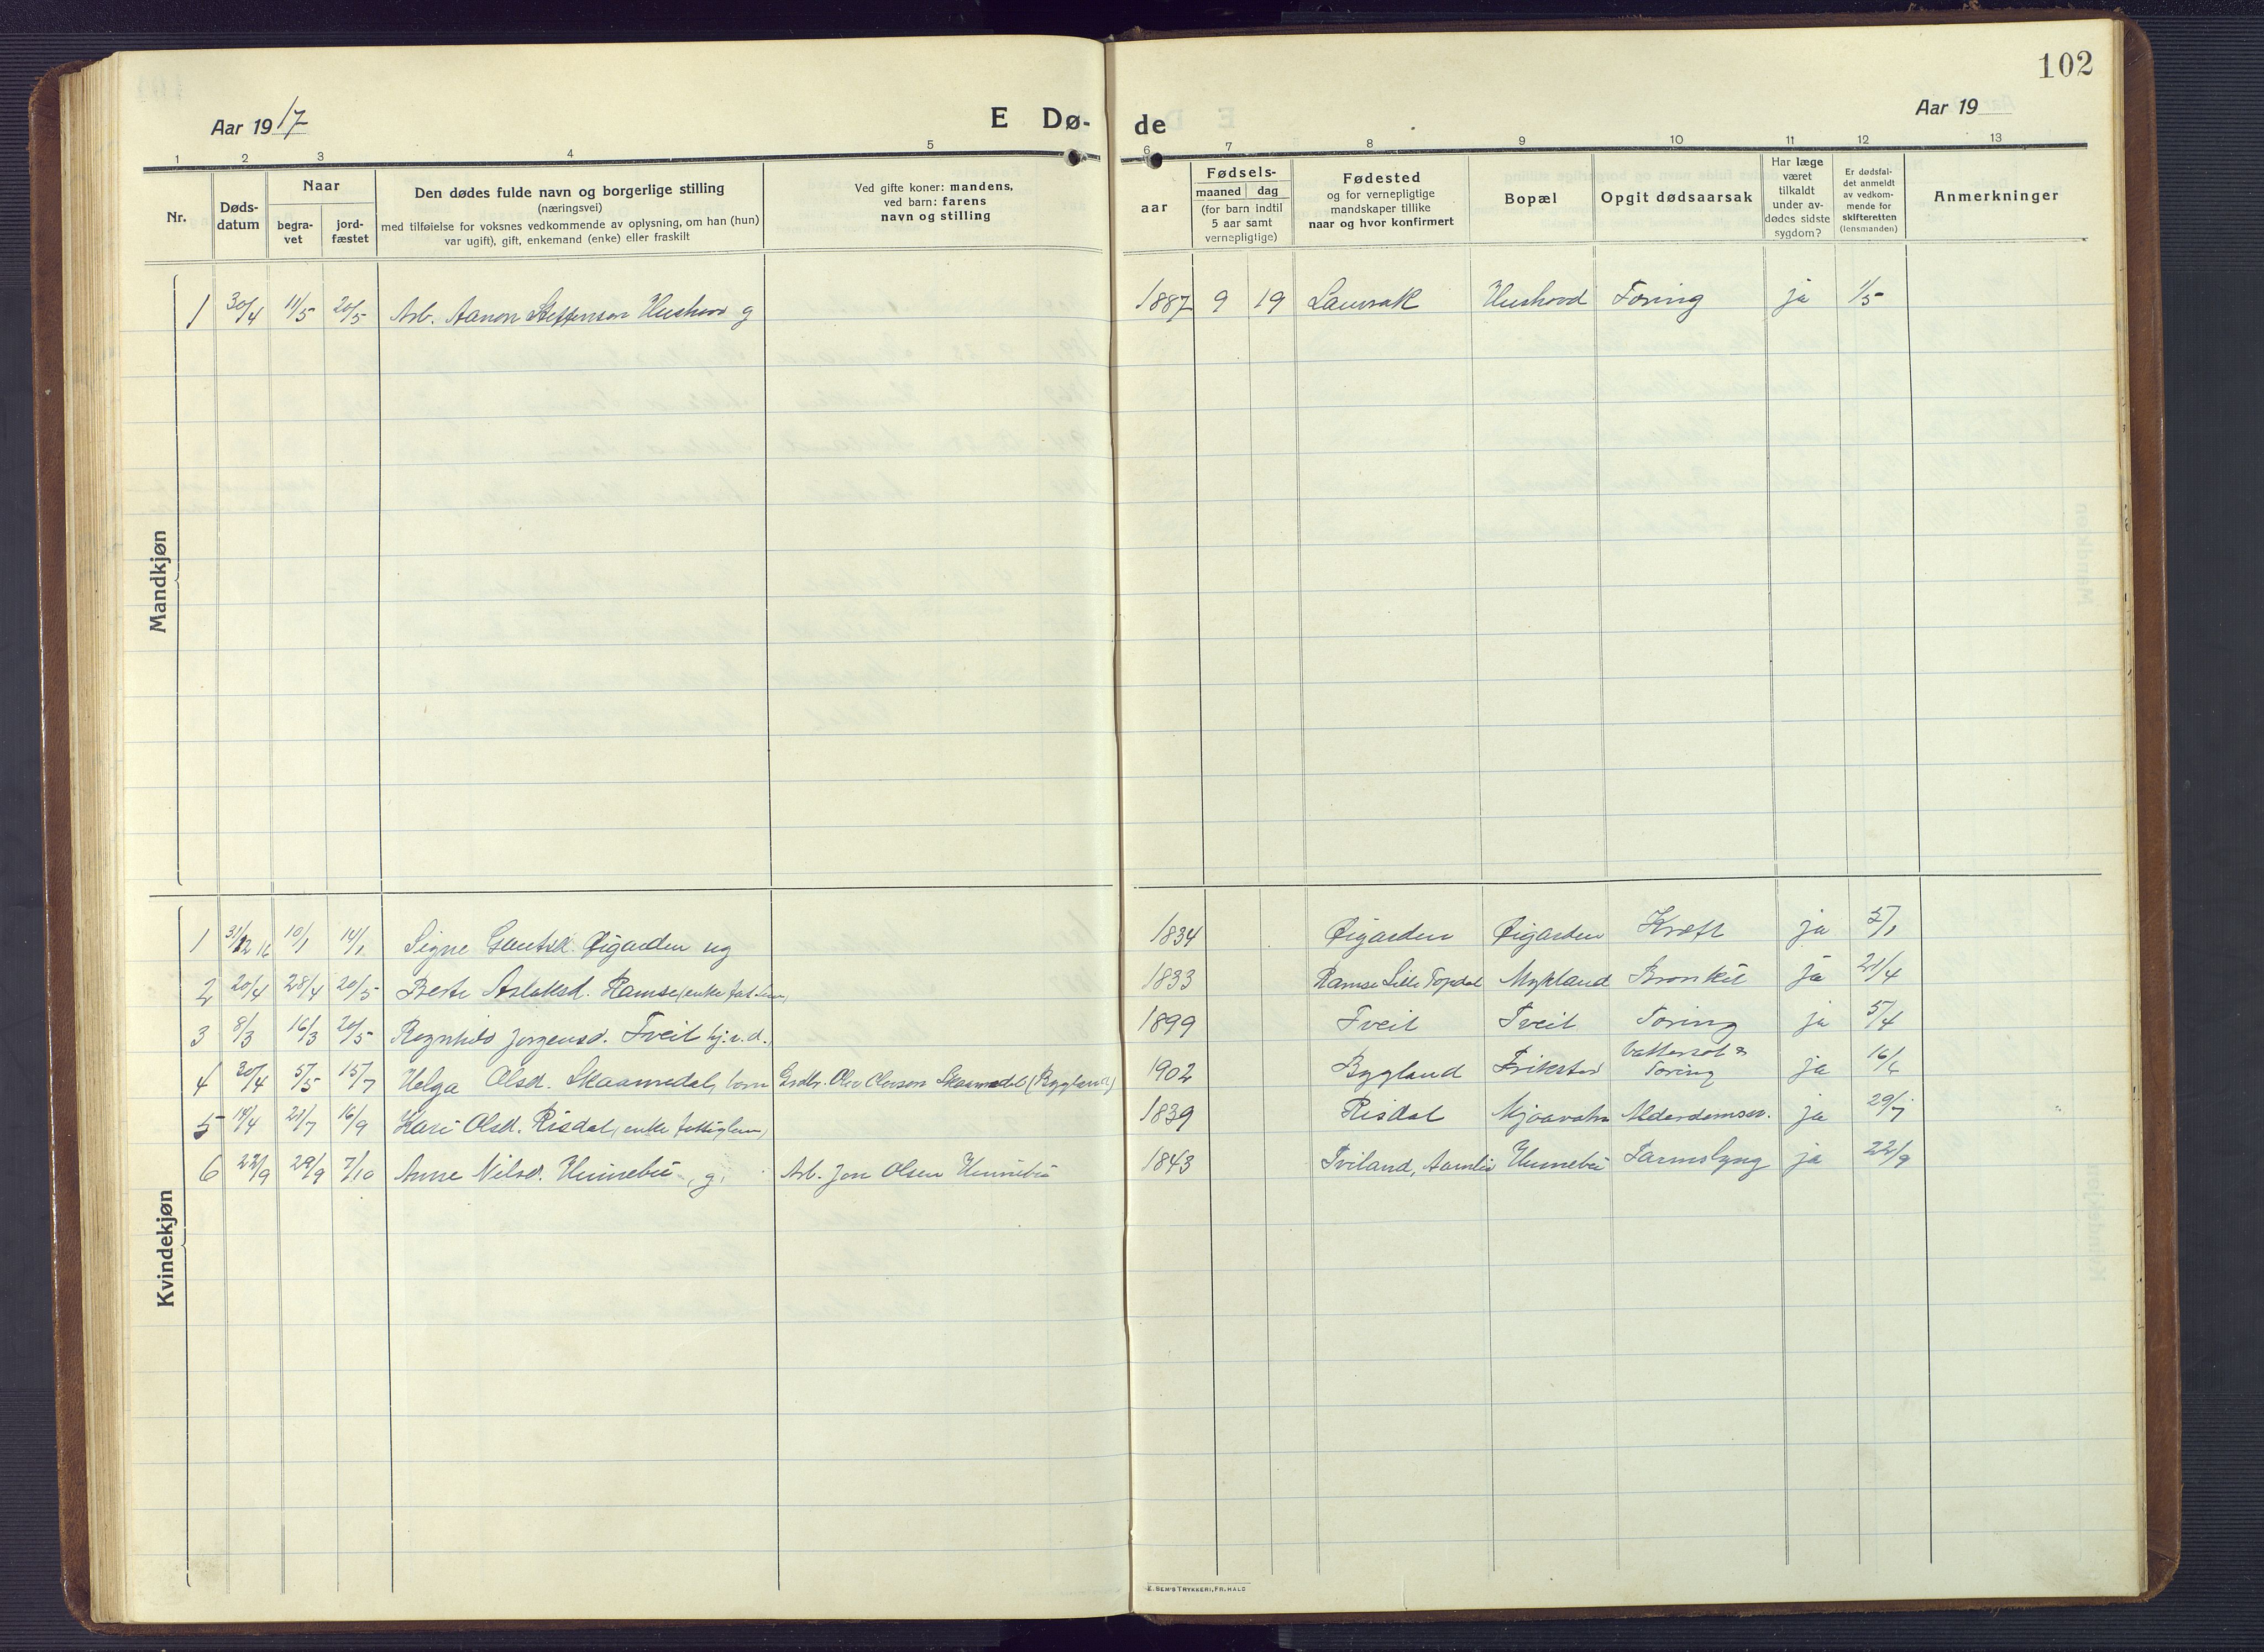 102
Aar 1917
E Dø-
de
Aar 19
1 2 3 4 5 6 7 8 9 10 11 12 13
Nr.
Døds-
datum
Naar
begra-
vet
jord-
fæstet
Den dødes fulde navn og borgerlige stilling
(næringsvei)
med tilføielse for voksnes vedkommende av oplysning, om han (hun)
var ugift), gift, enkemand (enke) eller fraskilt
Ved gifte koner: mandens,
ved barn: farens
navn og stilling
aar
Fødsels-
maaned dag
(for barn indtil
5 aar samt
vernepligtige)
Fødested
og for vernepligtige
mandskaper tillike
naar og hvor konfirmert
Bopæl
Opgit dødsaarsak
Har læge
været
tilkaldt
under av-
dødes sidste
sygdom?
Er dødsfal-
det anmeldt
av vedkom-
mende for
skifteretten
(lensmanden)
Anmerkninger
Mandkjøn
1 30/4 11/5 20/5 Arb. Aanon Steffenson Hushovd g 1887 9 19 Lauvrak Hushovd Tæring ja 1/5
Kvindekjøn
1 31/12 16 10/1 14/1 Signe Gautsd. Øigarden ug 1834 Øigarden Øigarden Kræft ja 5/1
2 20/4 28/4 20/5 Berte Aslaksd. Ramse, enke 1833 Ramse Lille Topdal Mykland Bronkit ja 21/4
3 8/3 16/3 20/5 Ragnhild Jørgensd. Tveit hj.v.d. 1899 Tveit Tveit Tæring ja 5/4
4 30/4 5/5 15/7 Helga Olsd. Skaamedal, barn Grdbr. Olav Olavson Skaamedal (Bygland) 1902 Bygland Frikstad Vattersot &
Tæring ja 16/6
5 14/4 21/7 16/9 Kari Olsd. Risdal, enke fattiglem, 1839 Risdal Mjaavatn Alderdomssv. ja 29/7
6 22/9 29/9 7/10 Anne Nilsd. Hunnebu, g. Arb. Jon Olsen Hunnebu 1843 Tviland, Aamli Hunnebu Tarmslyng ja 22/9
E. SEM'S TRYKKERI, FR.HALD